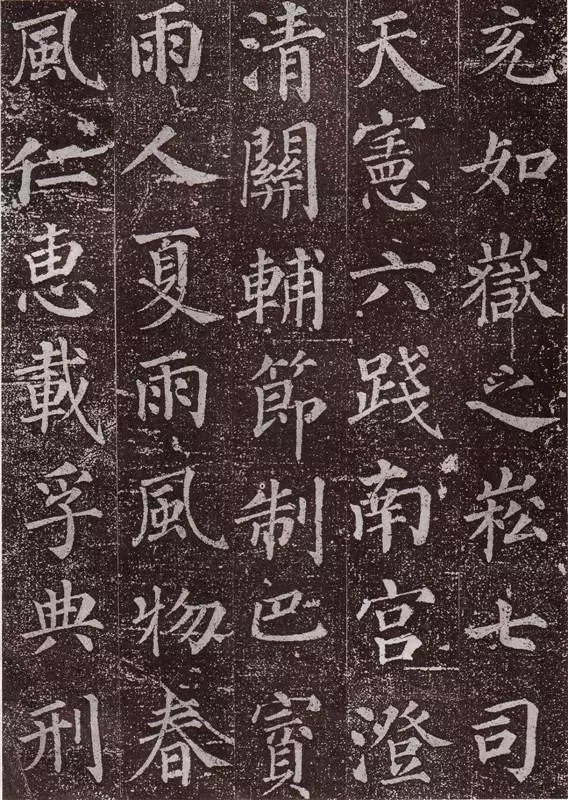 玄如嶽之崧七司
天憲六踐南宮澄
清關輔節制巴賨
雨人夏雨風物春
風仁惠載孚典刑